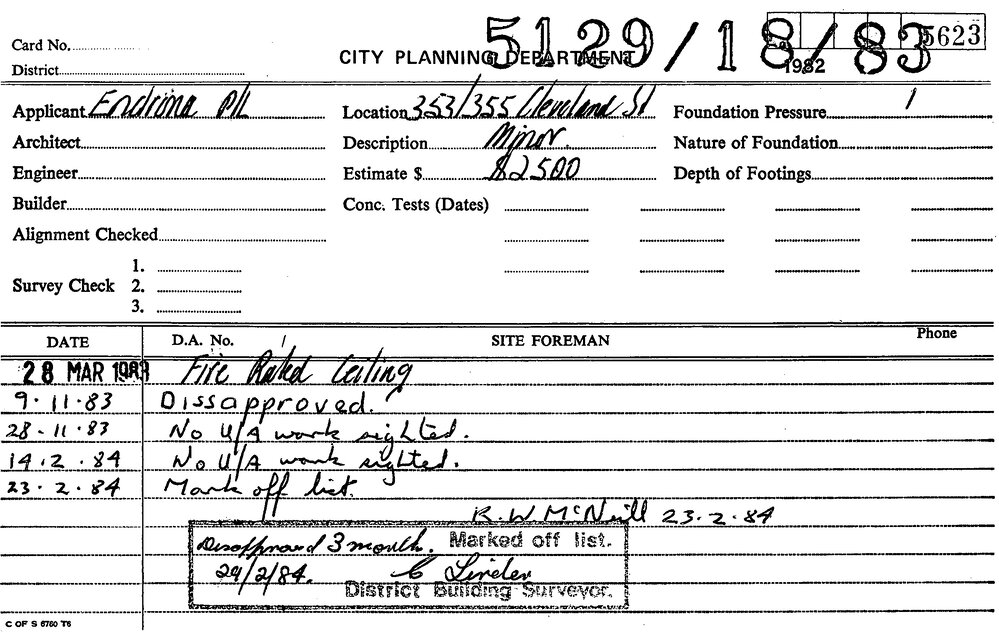 5129/18/83
5623
Card No.
CITY PLANNING DEPARTMENT
1982
District
Applicant Endrima P/L
Location 353/355 Cleveland St
Foundation Pressure
Architect
Description Minor.
Nature of Foundation
Engineer
Estimate $ $2500
Depth of Footings
Builder
Conc. Tests (Dates)
Alignment Checked
1.
Survey Check 2.
3.
DATE D.A. No. SITE FOREMAN Phone
28 MAR 1983 Fire Rated Ceiling
9.11.83 Dissapproved.
28-11.83 No U/A work sighted.
14.2.84 No U/A work sighted.
23.2.84 Mark off list.
R.W McNeill 23.2.84
Disapproved 3 month. Marked off list.
29/2/84. C Linden
District Building Surveyor.
C OF S 6760 T6